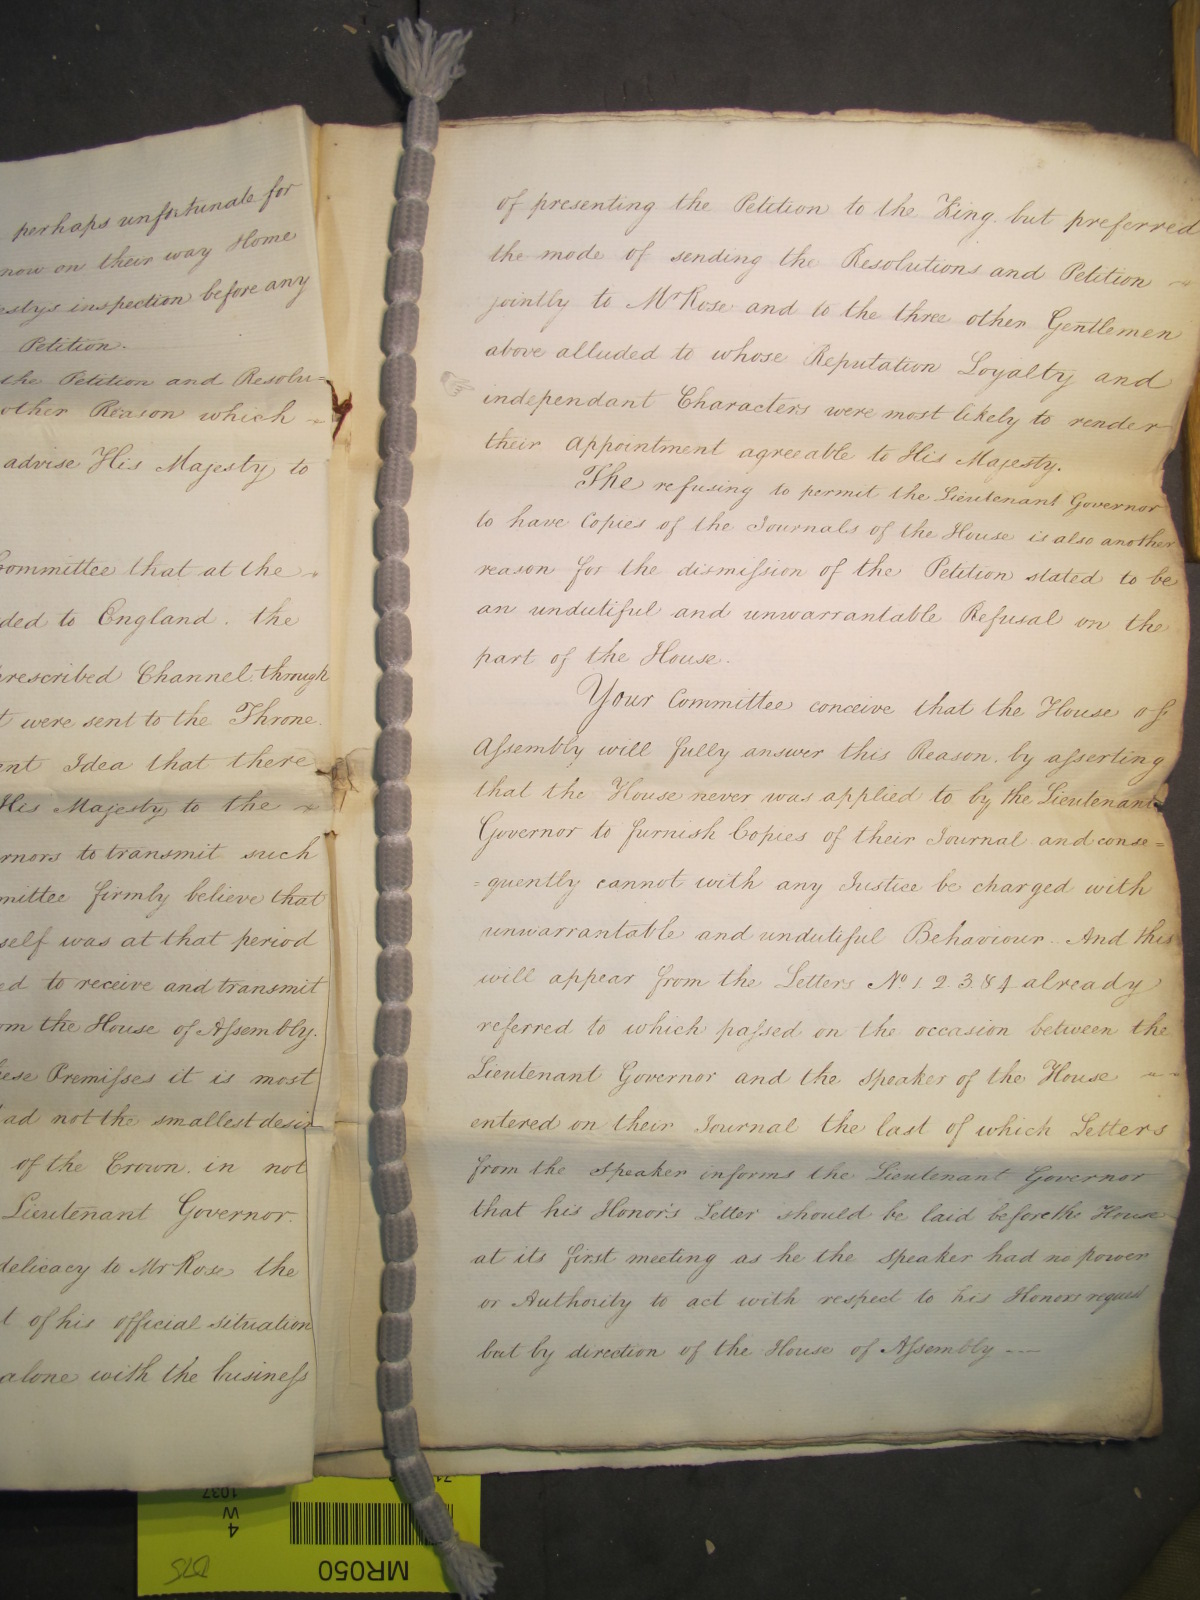 perhaps unfortunate for
now on their way Home
estys inspection before any
Petition.
the Petition and Resolu=
other Reason which
advise His Majesty to
Committee that at the
ded to England. the
prescribed Channel through
t were sent to the Throne.
ent Idea that there
His Majesty to the
rnors to transmit such
mittee firmly believe that
self was at that period
ed to receive and transmit
om the House of Assembly.
ese Premisses it is most
had not the smallest desir
of the Crown. in not
Lieutenant Governor.
delicacy to Mr Rose the
t of his official situation
alone with the business
of presenting the Petition to the King. but preferred
the mode of sending the Resolutions and Petition
jointly to Mr Rose and to the three other Gentlemen
above alluded to whose Reputation Loyalty and
independant Characters were most likely to render
their Appointment agreeable to His Majesty.
The refusing to permit the Lieutenant Governor
to have Copies of the Journals of the House is also another
reason for the dismission of the Petition stated to be
an undutiful and unwarrantable Refusal on the
part of the House.
Your Committee conceive that the House of
Assembly will fully answer this Reason. by asserting
that the House never was applied to by the Lieutenant
Governor to furnish Copies of their Journal and conse=
=quently cannot with any Justice be charged with
unwarrantable and undutiful Behaviour. And this
will appear from the Letters No. 1. 2. 3. & 4 already
referred to which passed on the occasion between the
Lieutenant Governor and the Speaker of the House
entered on their Journal the last of which Letters
from the Speaker informs the Lieutenant Governor
that his Honor's Letter should be laid before the House
at its first meeting as he the Speaker had no power
or Authority to act with respect to his Honors request
but by direction of the House of Assembly ---
MR050
4
W
1037